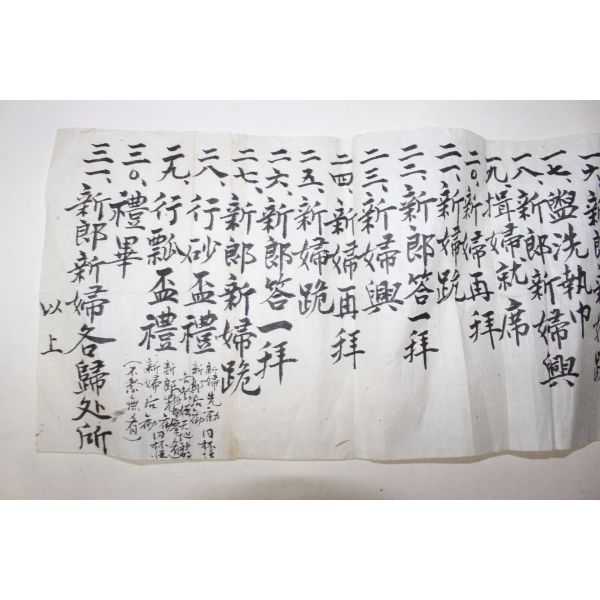 一六、新郎新婦跪
一七、盥洗執巾
一八、新郎新婦興
一九、揖婦就席
二〇、新婦再拜
二一、新婦跪
二二、新郎答一拜
二三、新婦興
二四、新婦再拜
二五、新婦跪
二六、新郎答一拜
二七、新郎新婦跪
二八、行砂盃禮
新婦先勸
新郎后勸
二九、行瓢盃禮
新婦后勸
三〇、禮畢
三一、新郎新婦各歸处所
以上